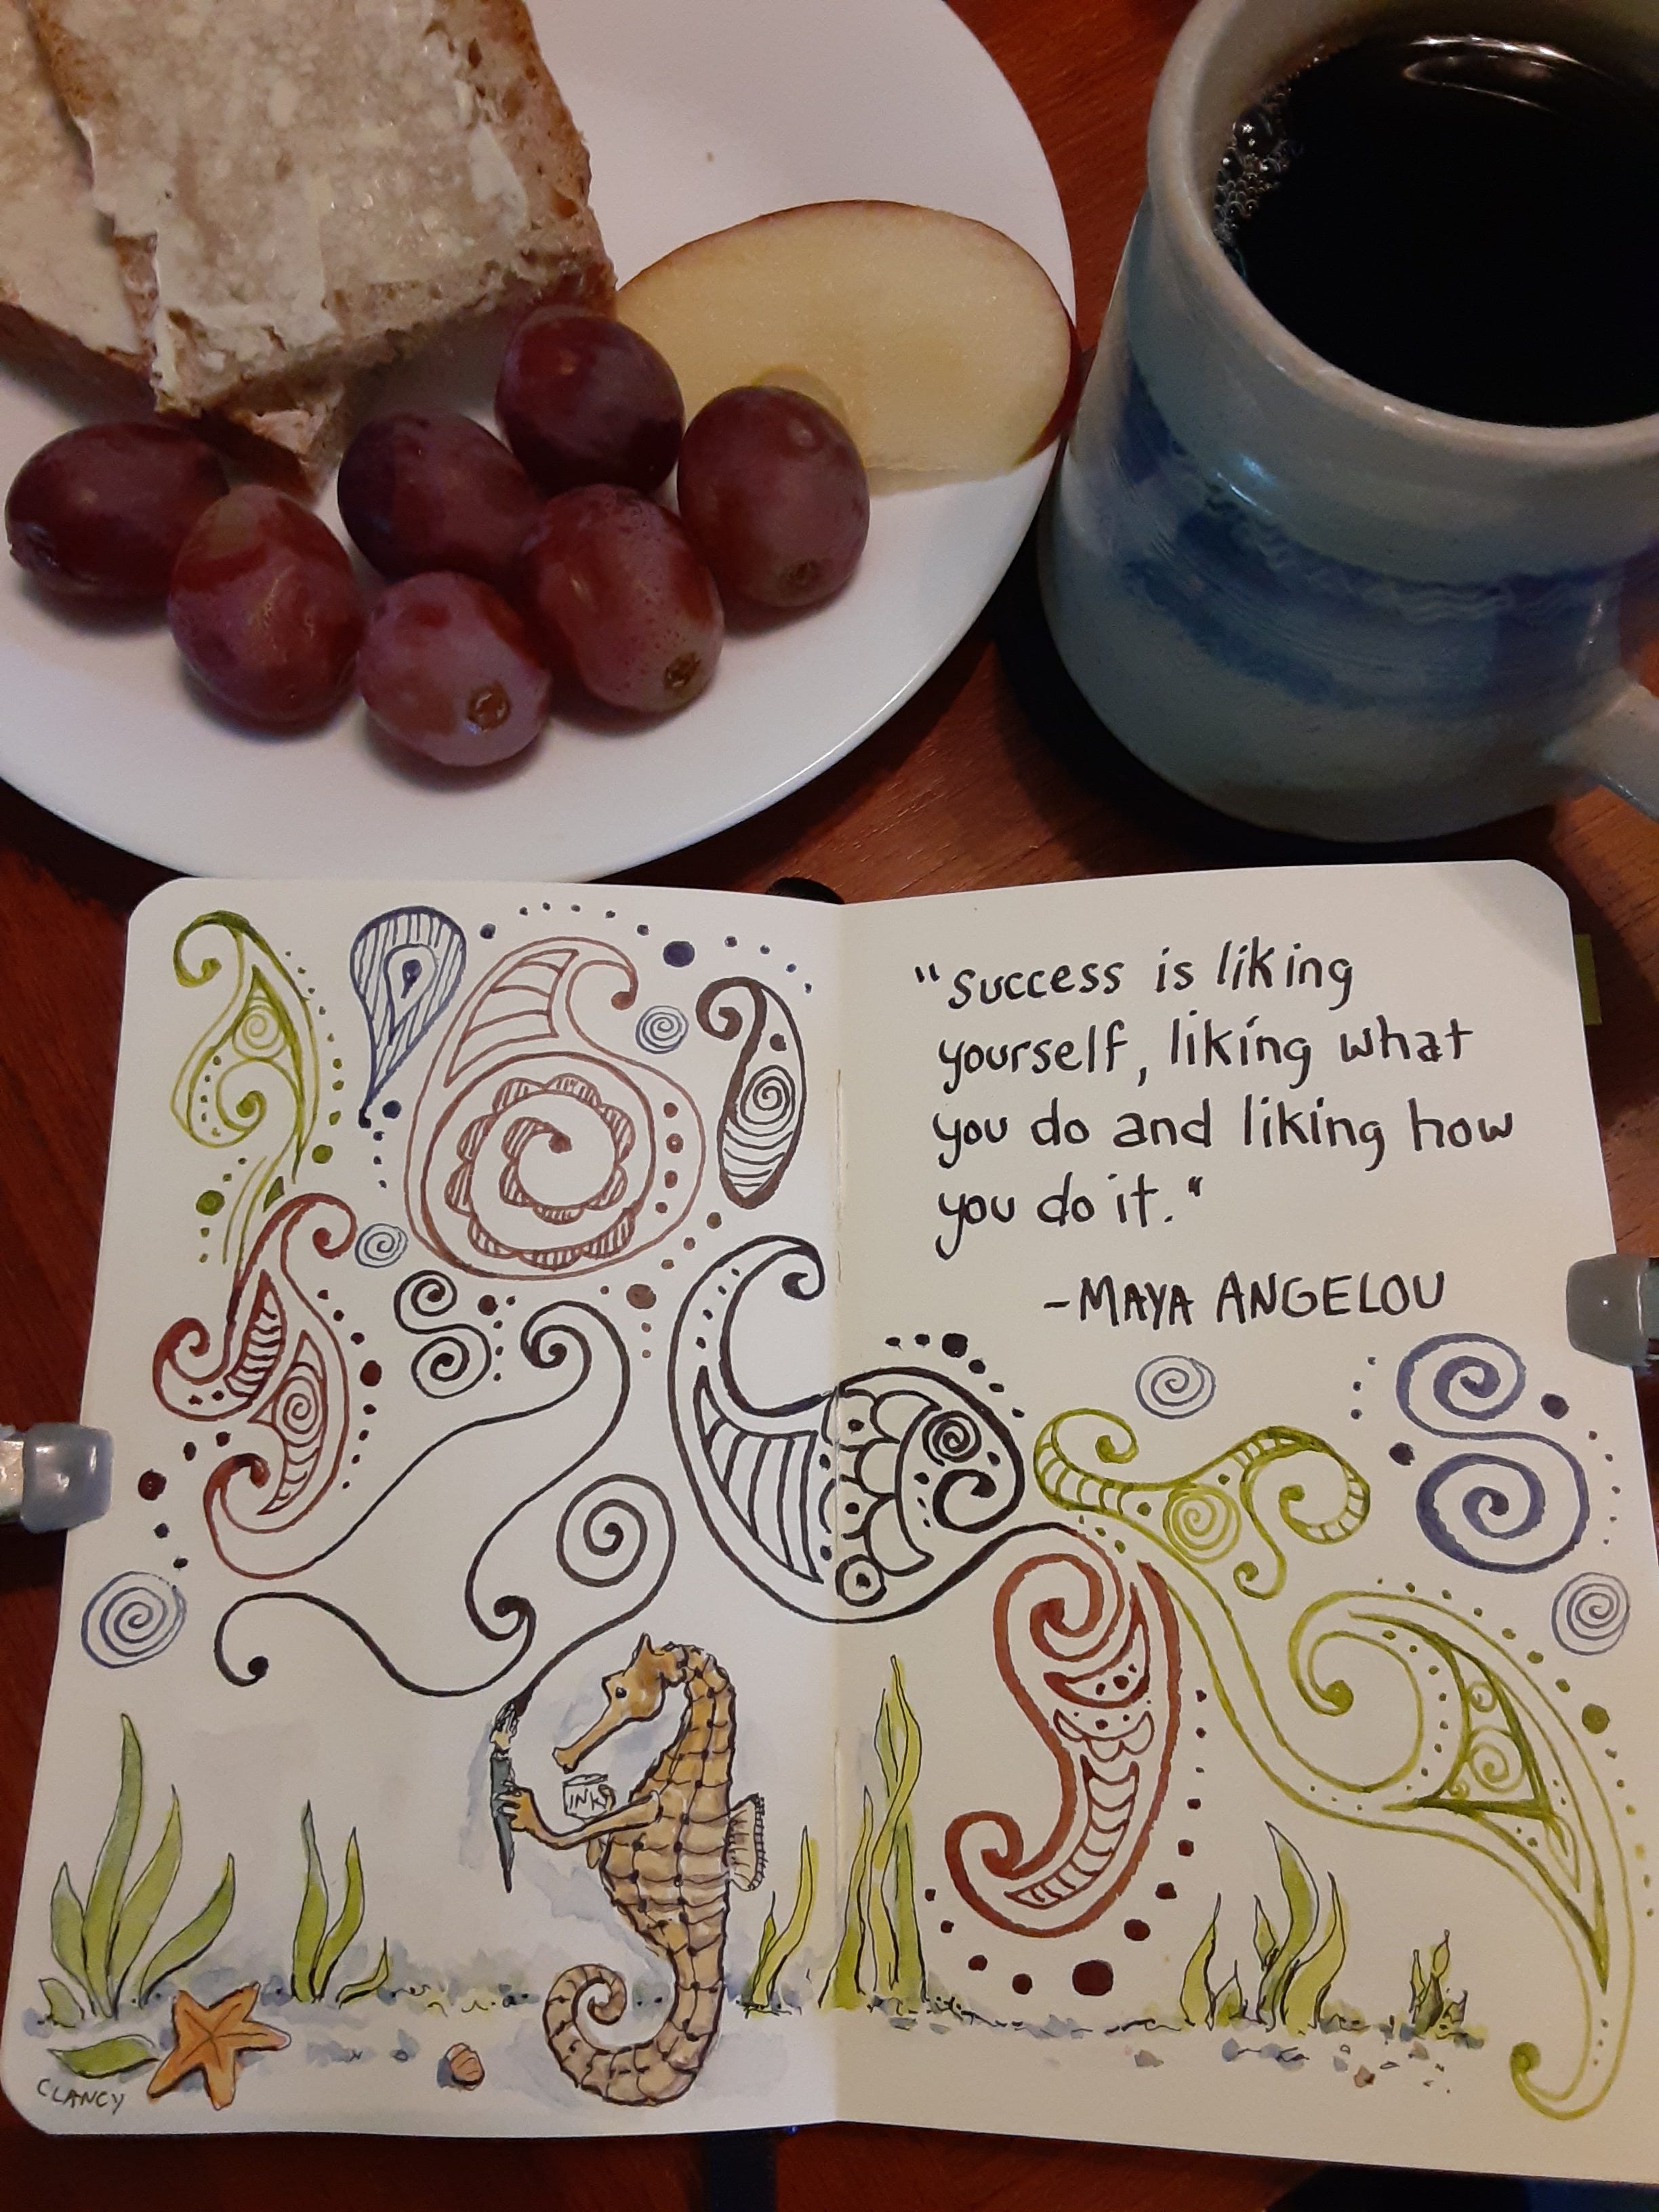 "success is liking
yourself, liking what
you do and liking how
you do it."
-MAYA ANGELOU
INK
CLANCY